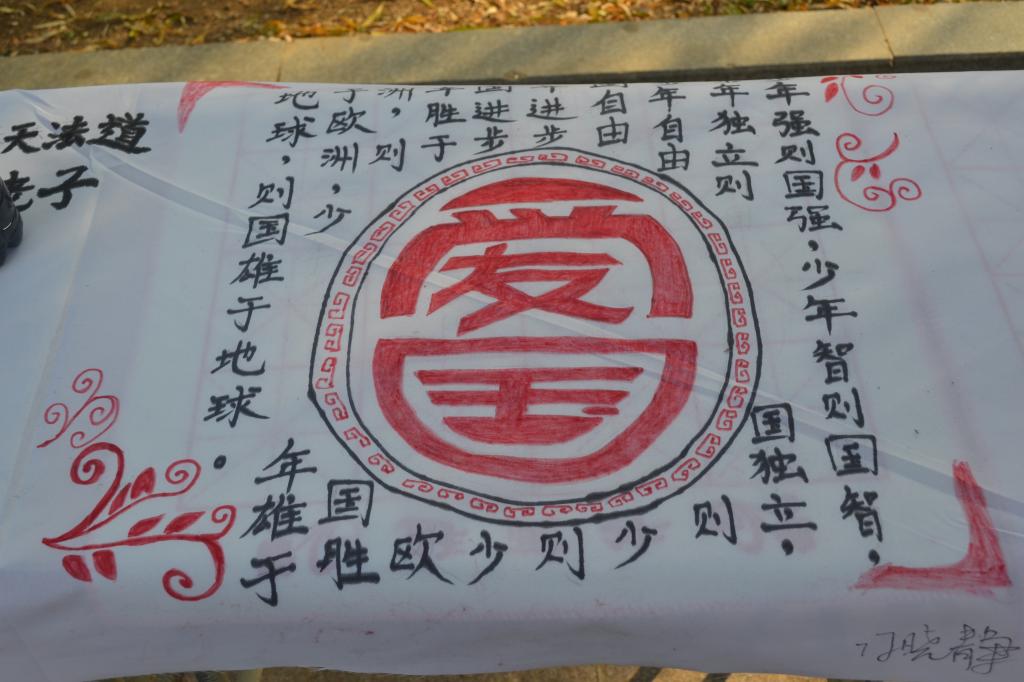 年强则国强，少年智则国智，
年独立则国独立，
年自由则
国自由少
年进步则
国进步少
年胜于欧
洲，则国胜
于欧洲，少年雄于
地球，则国雄于地球。
爱国
天法道
老子
晓静